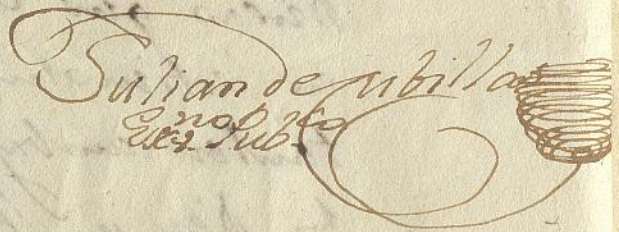 Julian de ubilla
Essno Pubco